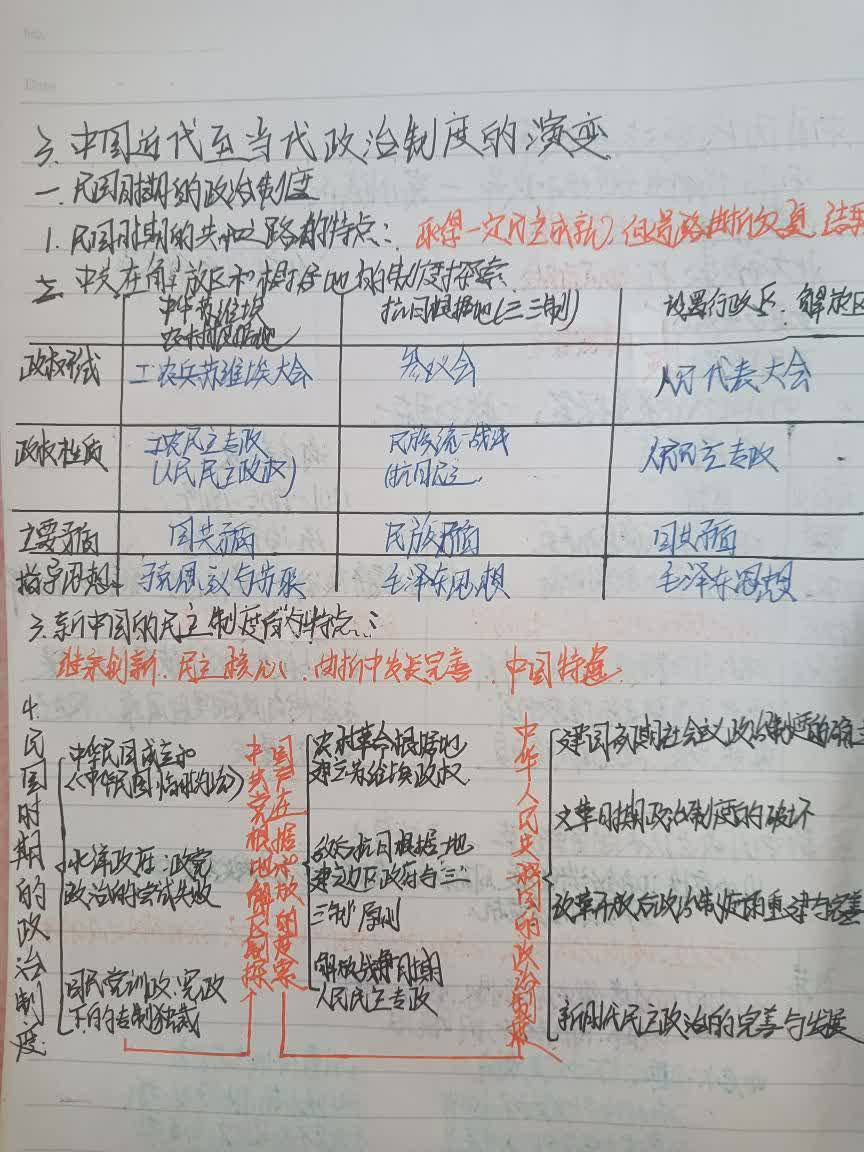 三、中国近代至当代政治制度的演变
一、民国时期的政治制度
1. 民国时期的共和之路有何特点：取得一定民主成就，但道路曲折反复，结果
二、中共在解放区和根据地的制度探索
中华苏维埃
农村根据地
抗日根据地(三三制)
设置行政区、解放区
政权形式
工农兵苏维埃大会
参议会
人民代表大会
政权性质
工农民主专政
(人民民主政权)
民族统一战线
(抗日民主
人民民主专政
主要矛盾
国共矛盾
民族矛盾
国共矛盾
指导思想
马克思主义与苏联
毛泽东思想
毛泽东思想
3. 新中国的民主制度有何特点：
继承创新、民主核心、曲折中发展完善、中国特色
4.
民国时期的政治制度
中华民国成立和
《中华民国临时约法》
北洋政府：政党
政治的尝试失败
国民党训政、宪政
下的专制独裁
中国共产党在根据地和解放区的制度探索
农村革命根据地
建立苏维埃政权
敌后抗日根据地
建立边区政府与“三
三制”原则
解放战争时期
人民民主专政
中华人民共和国的政治制度
建国初期社会主义政治制度的确立
文革时期政治制度的破坏
改革开放后政治制度的重建与完善
新时代民主政治的完善与发展